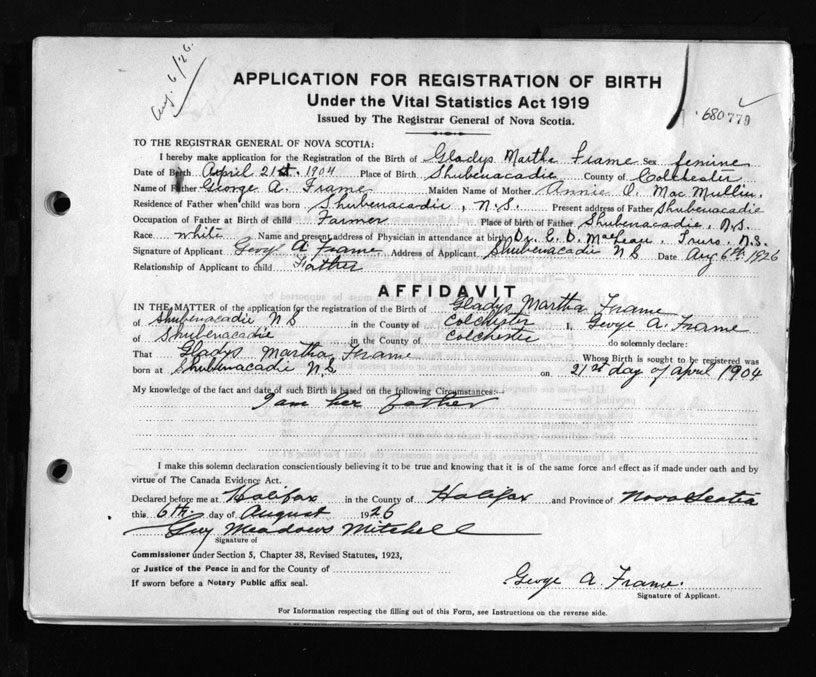 Aug. 6/26.
APPLICATION FOR REGISTRATION OF BIRTH
Under the Vital Statistics Act 1919
Issued by The Registrar General of Nova Scotia.
680779
TO THE REGISTRAR GENERAL OF NOVA SCOTIA:
I hereby make application for the Registration of the Birth of Gladys Martha Frame Sex femine
Date of Birth April 21st. 1904 Place of Birth Shubenacadie County of Colchester
Name of Father George A. Frame Maiden Name of Mother Annie O. Mac Mullin.
Residence of Father when child was born Shubenacadie, N.S. Present address of Father Shubenacadie
Occupation of Father at Birth of child Farmer Place of birth of Father Shubenacadie, N.S.
Race white Name and present address of Physician in attendance at birth Dr. E. D. MacLean, Truro, N.S.
Signature of Applicant George A Frame Address of Applicant Shubenacadie N S Date Aug 6th 1926
Relationship of Applicant to child Father
AFFIDAVIT
IN THE MATTER of the application for the registration of the Birth of Gladys Martha Frame
of Shubenacadie N S in the County of Colchester I, George A. Frame
of Shubenacadie in the County of Colchester do solemnly declare:
That Gladys Martha Frame Whose Birth is sought to be registered was
born at Shubenacadie N.S. on 21st day of April 1904
My knowledge of the fact and date of such Birth is based on the following Circumstances:—
I am her father
I make this solemn declaration conscientiously believing it to be true and knowing that it is of the same force and effect as if made under oath and by
virtue of The Canada Evidence Act.
Declared before me at Halifax in the County of Halifax and Province of Nova Scotia
this 6th day of August 1926
Guy Meadows Mitchell
Signature of
Commissioner under Section 5, Chapter 38, Revised Statutes, 1923,
or Justice of the Peace in and for the County of
If sworn before a Notary Public affix seal.
George A. Frame.
Signature of Applicant.
For Information respecting the filling out of this Form, see Instructions on the reverse side.